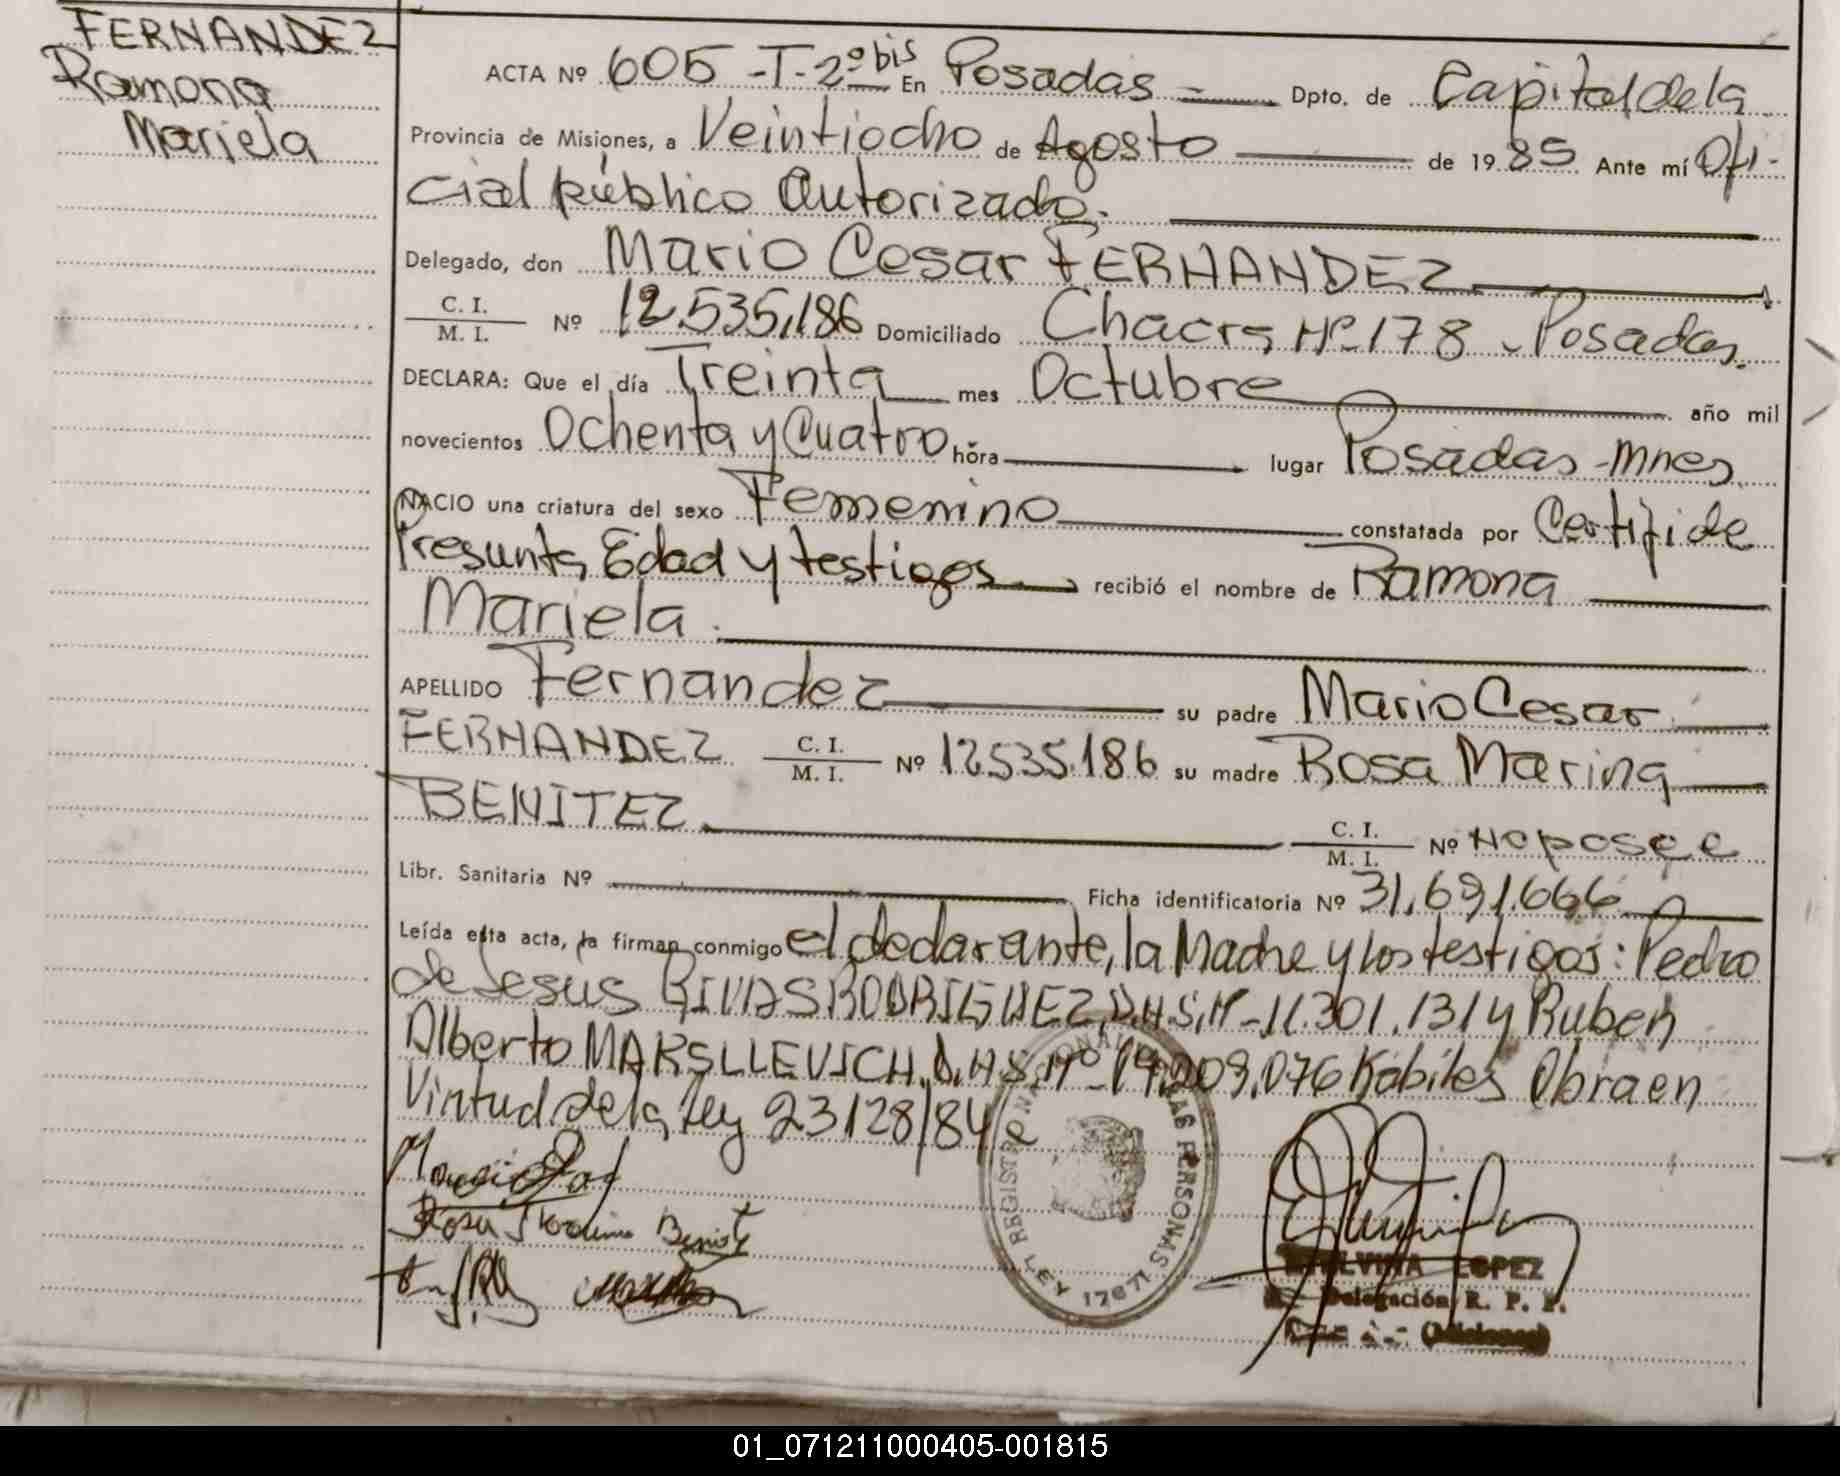 FERNANDEZ
Ramona
Mariela
ACTA Nº 605 -T-2º bis En Posadas Dpto. de Capital de la
Provincia de Misiones, a Veintiocho de Agosto de 1985 Ante mí Ofi-
cial público Autorizado.
Delegado, don Mario Cesar FERNANDEZ
C. I. / M. I. Nº 12.535.186 Domiciliado Chacra Nº 178 - Posadas.
DECLARA: Que el día Treinta mes Octubre año mil
novecientos Ochenta y Cuatro hora lugar Posadas - Mnes.
NACIO una criatura del sexo Femenino constatada por Certifi de
Presunta Edad y testigos recibió el nombre de Ramona
Mariela.
APELLIDO Fernandez su padre Mario Cesar
FERNANDEZ C. I. / M. I. Nº 12535.186 su madre Rosa Marina
BENITEZ C. I. / M. I. Nº No posee
Libr. Sanitaria Nº Ficha identificatoria Nº 31.691.666
Leída esta acta, la firman conmigo el declarante, la Madre y los testigos: Pedro
de Jesus RIVAS RODRIGUEZ, D.N.I. Nº 11.301.131 y Ruben
Alberto Nº 19.209.076 Habiles Obra en
Virtud de la Ley 23128/84
REGISTRO NACIONAL DE LAS PERSONAS
LEY 17671
LOPEZ
Delegación R. P. P.
(Misiones)
01_071211000405-001815